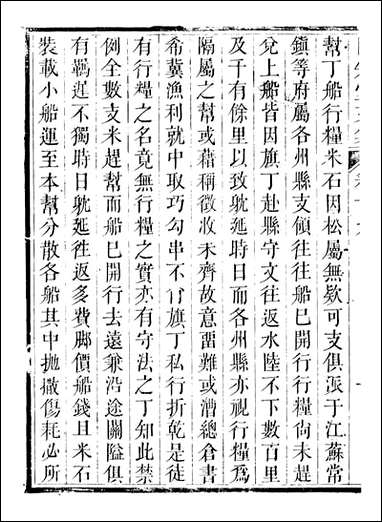 幫丁船行糧米石因松屬無欵可支俱派于江蘇常
鎮等府屬各州縣支領往往船已開行行糧尙未趕
兌上船皆因旗丁赴縣守文往返水陸不下數百里
及千有餘里以致躭延時日而各州縣亦視行糧爲
隔屬之幫或藉稱徵收未齊故意畱難或漕總倉書
希冀漁利就中取巧勾串不肖旗丁私行折乾是徒
有行糧之名竟無行糧之實亦有守法之丁知此禁
例全數支米趕幫而船已開行去遠兼沿途關隘俱
有羈遲不獨時日躭延徃返多費脚價船錢且米石
裝載小船運至本幫分散各船其中抛撒傷耗必所